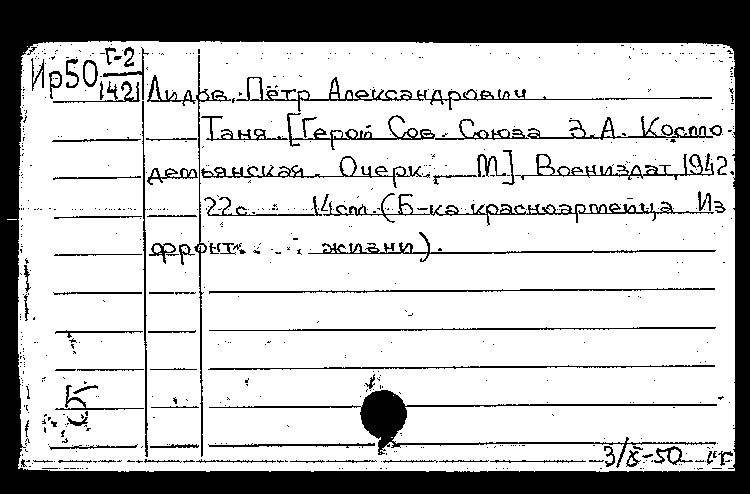 Ир50 Г-2
1421
Лидов, Пётр Александрович.
Таня. [Герой Сов. Союза З.А. Космо-
демьянская. Очерк. М.], Воениздат, 1942.
22с. 14cm. (Б-ка красноармейца Из
фронт. жизни).
3/X-50